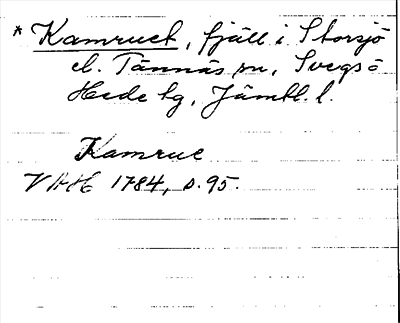 * Kamruet, fjäll i Storsjö
el. Tännäs sn, Svegs o
Hede tg, Jämtl. l.
Kamrue
VAH 1784, s. 95.